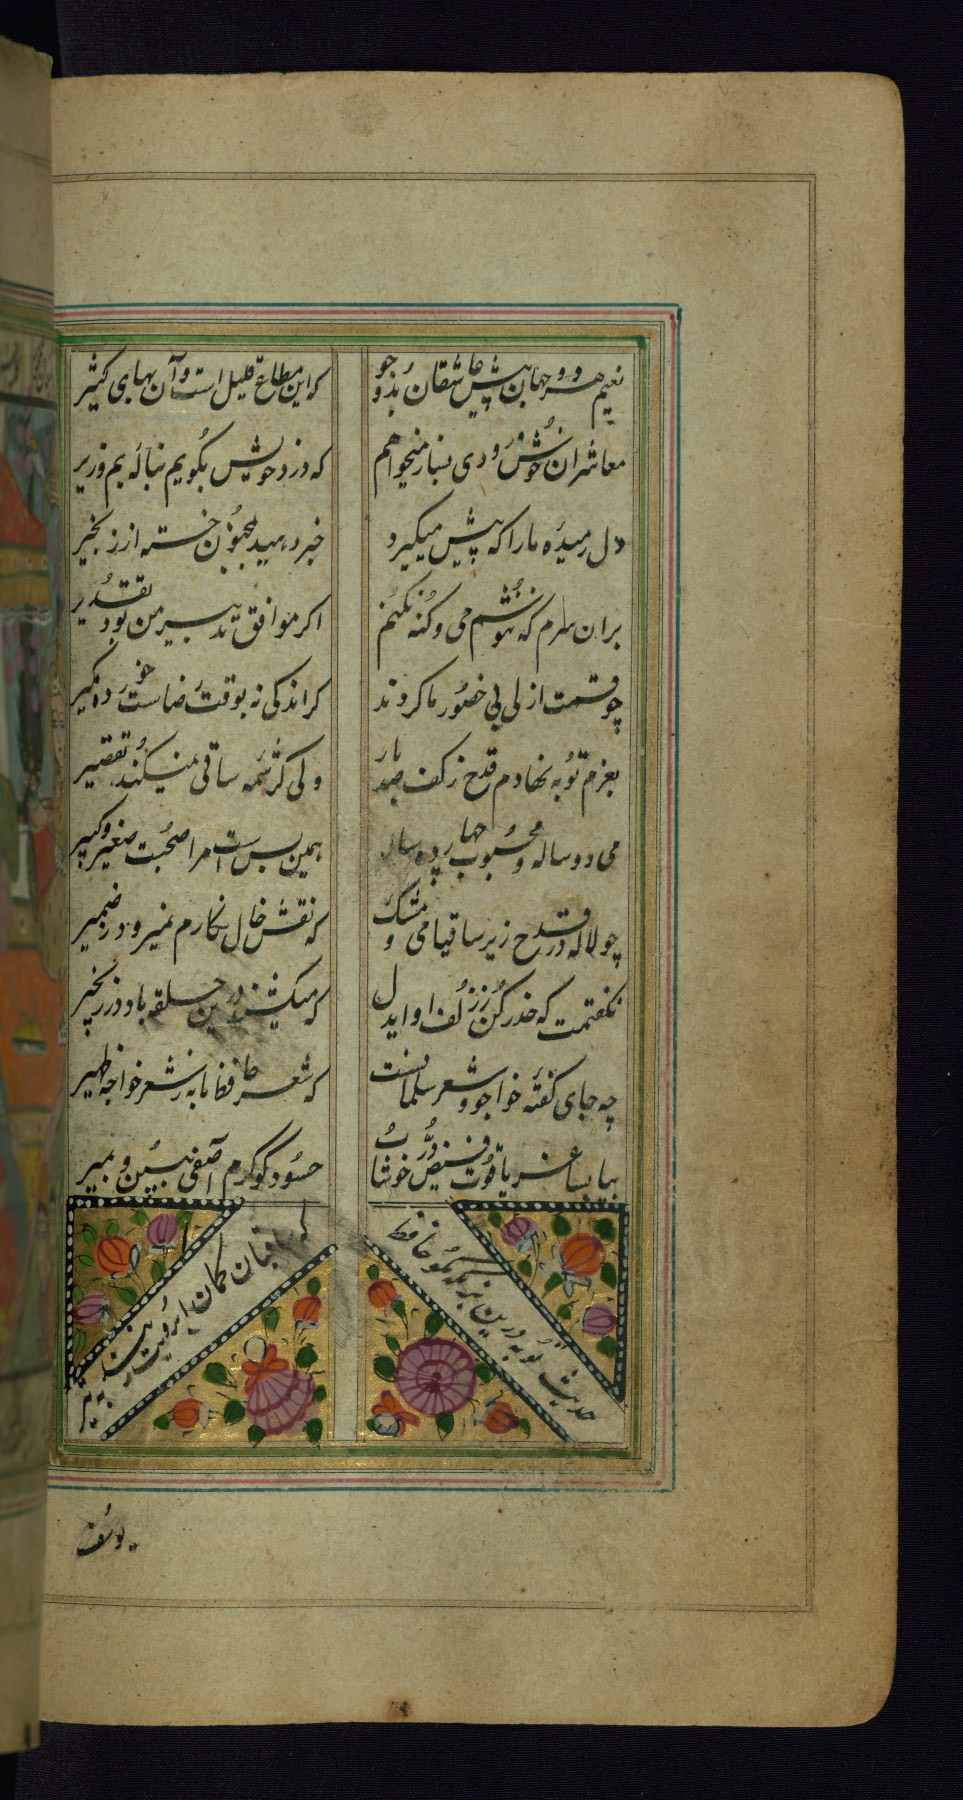 نعیم هر دو جهان پیش عاشقان بدو جو
که این مطاع قلیل است و آن بهای کثیر
معاشران خوش و رودی بساز میخواهم
که درد خویش بگویم بنالهٔ بم و زیر
دل رمیدهٔ ما را که پیش میگیرد
خبر دهید بمجنون خسته از زنجیر
بران سرم که ننوشم می و گنه نکنم
اگر موافق تدبیر من بود تقدیر
چو قسمت ازلی بی حضور ما کردند
گر اندکی نه بوقت رضاست خورده مگیر
بعزم توبه نهادم قدح ز کف صد بار
ولی کرشمه ساقی نمیکند تقصیر
می دو ساله و محبوب چهارده ساله
همین بس است مرا صحبت صغیر و کبیر
چو لاله در قدح ریز ساقیا می و مشک
که نقش خال نگارم نمیرود ز ضمیر
نگفتمت که حذر کن ز زلف او ایدل
که میکشند درین حلقه باد در زنجیر
چه جای گفتهٔ خواجو و شعر سلمانست
که شعر حافظ ما به ز شعر خواجه ظهیر
بیا بساغر یاقوت فیض در خوشاب
حسود گو کرم آصفی ببین و بمیر
حدیث توبه درین بزمگه مگو حافظ
که ساقیان کمان ابرویت زنند به تیر
یوسف